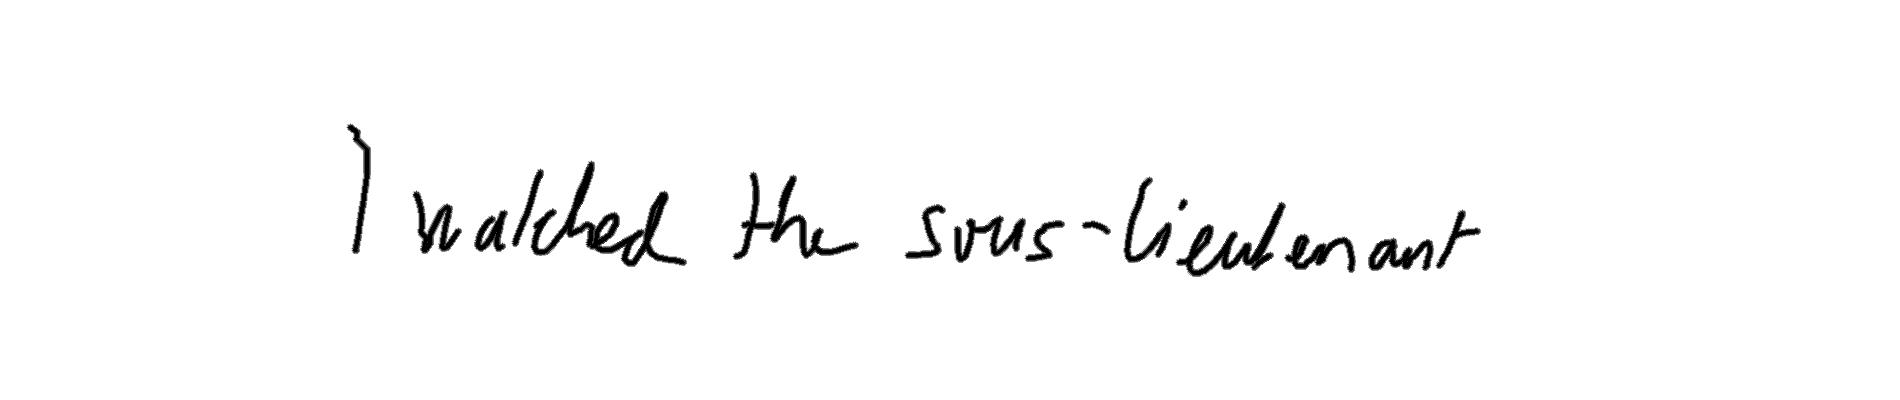 I watched the sous-lieutenant